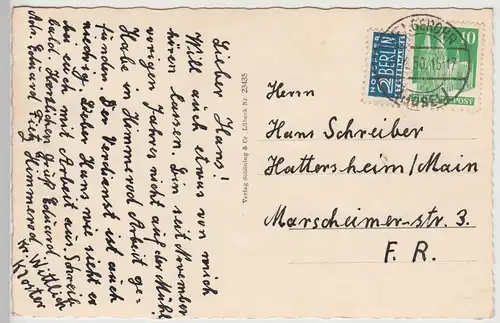 Lieber Hans!
Will auch etwas von mich
hören lassen. Bin seit November
vorigen Jahres nicht auf der Mühl
Habe in Himmerod Arbeit ge-
funden. Der Verdienst ist auch
niedrig. Lieber Hans wie sieht es
bei euch mit Arbeit aus. Schreib
bald. Herzlichen Gruß Eduard.
Adr. Eduard Himmerod
Kr. Wittlich
Kloster
Verlag Schöning & Co., Lübeck Nr. 23435
NOTOPFER
2 BERLIN
STEUERMARKE
10
POST
Herrn
Hans Schreiber
Hattersheim/Main
Marscheimer-str. 3.
F. R.